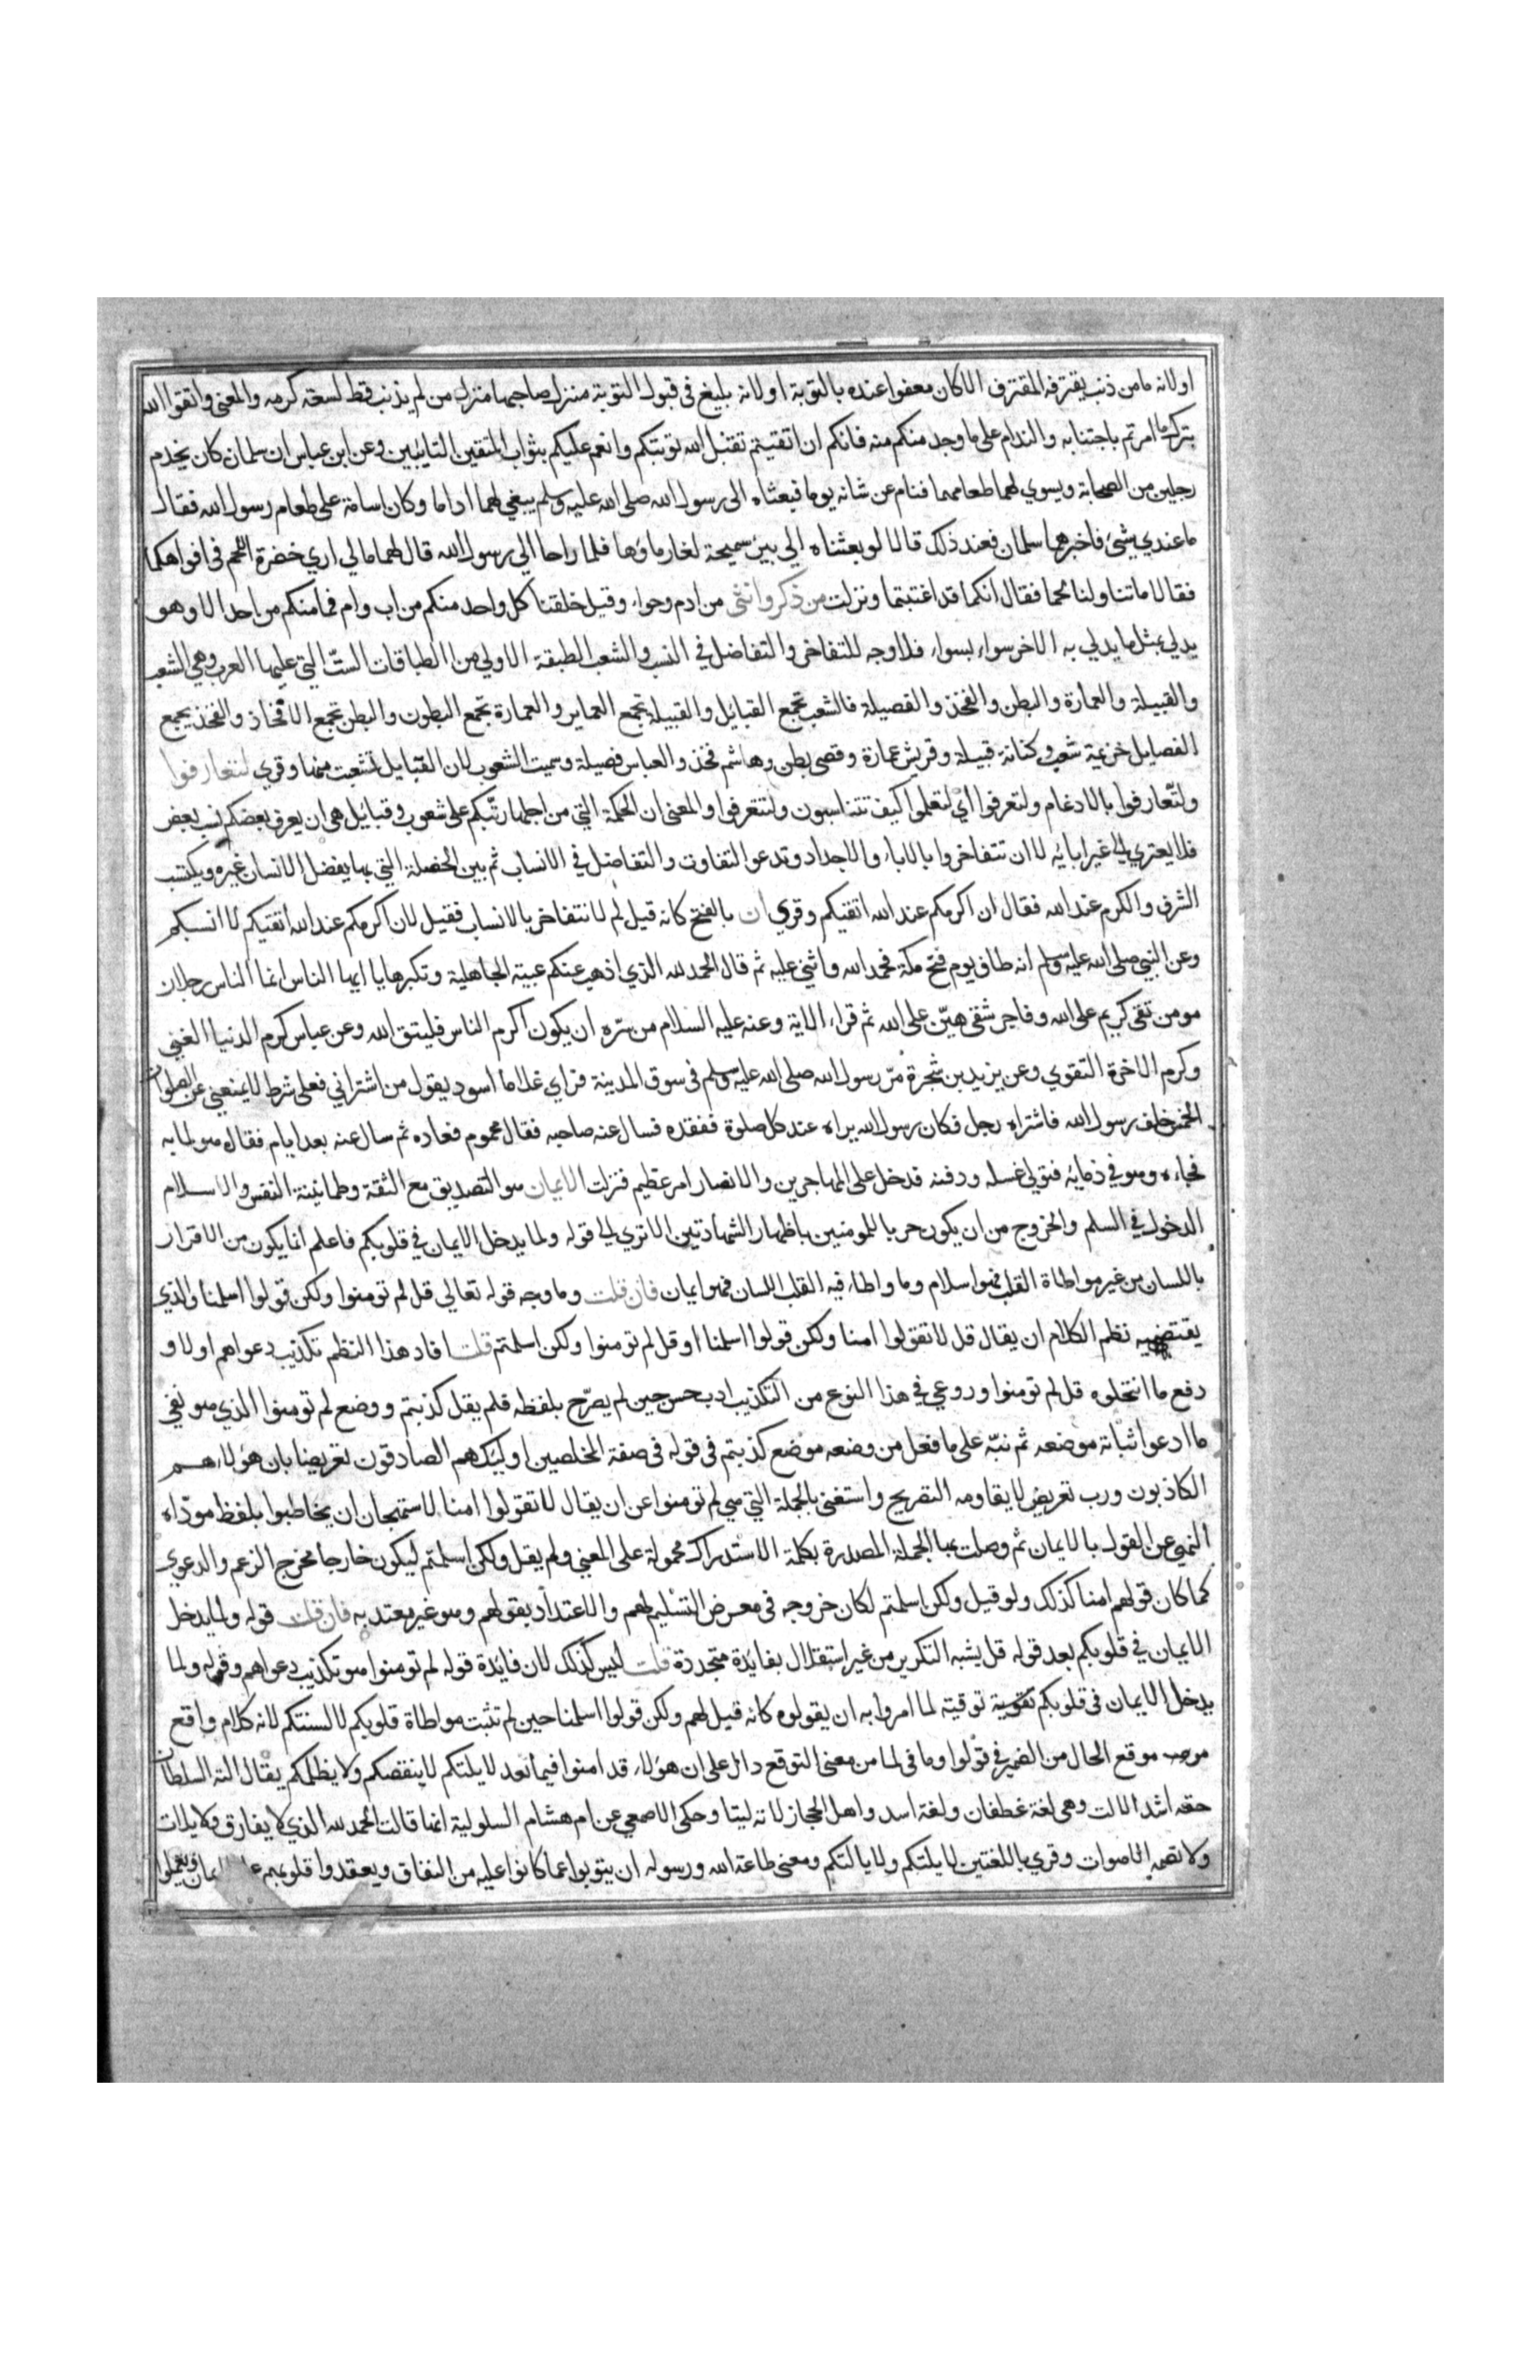 اولانه مامن ذنب يقترفه المقترف الاكان معفوا عنده بالتوبة اولانه بليغ فى قبول التوبة منزل صاحبها منزلة من لم يذنب قط لسعة كرمه والمعنى واتقوا الله
بترك ما امرتم باجتنابه والندام على ما وجد منكم منه فانكم ان اتقيتم تقبل الله توبتكم وانعم عليكم بثواب المتقين التايبين وعن ابن عباس ان سلمان كان يخدم
رجلين من الصحابة ويسوي لهما طعامهما فنام عن شانه يوما فبعثاه الى رسول الله صلى الله عليه وسلم يبغي لهما اداما وكان اسامة على طعام رسول الله فقال
ما عندي شئ فاخبرهما سلمان فعند ذلك قالا لو بعثناه الي بير سميحة لغار ماؤها فلما راحا الي رسول الله قال لهما مالي اري خضرة اللحم فى افواهكما
فقالا ما تناولنا لحما فقال انكما قد اغتبتما ونزلت من ذكر وانثى من ادم وحواء وقيل خلقنا كل واحد منكم من اب وام فما منكم من احد الا وهو
يدلي بمثل ما يدلي به الاخر سواء بسواء فلا وجه للتفاخر والتفاضل في النسب والشعب الطبقة الاولي من الطباقات الستّ التي عليها العرب وهي الشعب
والقبيلة والعمارة والبطن والفخذ والفصيلة فالشعب تجمع القبائل والقبيلة تجمع العماير والعمارة تجمع البطون والبطن تجمع الافخاذ والفخذ يجمع
الفصايل خزيمة شعب وكنانة قبيلة وقريش عمارة وقصى بطن وهاشم فخذ والعباس فصيلة وسميت الشعوب لان القبايل تشعبت منها وقري لتتعارفوا
ولتّعارفوا بالادغام ولتعرفوا اي لتعلموا كيف تتناسبون ولتتعرفوا والمعنى ان الحكمة التي من اجلها رتّبكم على شعوب وقبائل هى ان يعرف بعضكم نسب بعض
فلا يعتري الى غير ابائه لا ان تتفاخروا بالاباء والاجداد وتدعوا التفاوت والتفاضل في الانساب ثم بين الخصلة التي بها يفضل الانسان غيره ويكتسب
الشرف والكرم عند الله فقال ان اكرمكم عند الله اتقيكم وقري ان بالفتح كانه قيل لم لا نتفاخر بالانساب فقيل لان اكرمكم عند الله أتقيكم لا انسبكم
وعن النبي صلى الله عليه وسلم انه طاف يوم فتح مكة فحمد الله واثني عليه ثم قال الحمد لله الذي اذهب عنكم عبية الجاهلية وتكبرها يا ايها الناس انما الناس رجلان
مومن تقى كريم على الله وفاجر شقى هيّن على الله ثم قراء الاية وعنه عليه السلام من سرّه ان يكون اكرم الناس فليتق الله وعن عباس كرم الدنيا الغني
وكرم الاخرة التقوي وعن يزيد بن شجرة مرّ رسول الله صلى الله عليه وسلم فى سوق المدينة فراي غلاما اسود يقول من اشتراني فعلى شرط لا يمنعني عن الصلوات
الخمس خلف رسول الله فاشتراه رجل فكان رسول الله يراه عند كل صلوة ففقده فسال عنه صاحبه فقال محموم فعاده ثم سال عنه بعد ايام فقال هو لما به
فجاءه وهو في ذمائه فتولي غسله ودفنه فدخل على المهاجرين والانصار امر عظيم فنزلت الايمان هو التصديق مع الثقة وطمانينة النفس والاسلام
الدخول في السلم والخروج من ان يكون حربا للمومنين باظهار الشهادتين الا تري الى قوله ولما يدخل الايمان في قلوبكم فاعلم انما يكون من الاقرار
باللسان من غير مواطاة القلب فهو اسلام وما واطاء فيه القلب اللسان فهو ايمان فان قلت وما وجه قوله تعالي قل لم تومنوا ولكن قولوا اسلمنا والذي
يقتضيه نظم الكلام ان يقال قل لا تقولوا امنا ولكن قولوا اسلمنا او قل لم تومنوا ولكن اسلمتم قلت افاد هذا النظم تكذيب دعواهم اولا و
دفع ما انتحلوه قل لم تومنوا وروعي في هذا النوع من التكذيب ادب حسن حين لم يصرّح بلفظه فلم يقل كذبتم ووضع لم تومنوا الذي هو نفي
ما ادعوا ثباتة موضعه ثم نبّه على ما فعل من وضعه موضع كذبتم فى قوله فى صفة المخلصين اوليئك هم الصادقون تعريضا بان هؤلاء هم
الكاذبون ورب تعريض لا يقاومه التصريح واستغنى بالجملة التي هي لم تومنوا عن ان يقال لا تقولوا امنا لاستهجان ان يخاطبوا بلفظ مودّاه
النهي عن القول بالايمان ثم وصلت بها الجملة المصدرة بكلمة الاستدراك محمولة على المعني ولم يقل ولكن اسلمتم ليكون خارجا مخرج الزعم والدعوي
كما كان قولهم امنا كذلك ولو قيل ولكن اسلمتم لكان خروجه فى معرض التسليم لهم والاعتداد بقولهم وهو غير معتد به فان قلت قوله ولما يدخل
الايمان في قلوبكم بعد قوله قل يشبه التكرير من غير استقلال بفائدة متجددة قلت ليس كذلك لان فايدة قوله لم تومنوا هو تكذيب دعواهم وقوله ولما
يدخل الايمان فى قلوبكم توقيتة لما امروا به ان يقولوه كانه قيل لهم ولكن قولوا اسلمنا حين لم تثبت مواطاة قلوبكم لالسنتكم لانه كلام واقع
موقع الحال من الضمير في قولوا وما فى لما من معنى التوقع دال على ان هؤلاء قد امنوا فيما بعد لا يلتكم لا ينقصكم ولا يظلمكم يقال الته السلطان
حقه اشد الالت وهى لغة غطفان ولغة اسد واهل الحجاز لاته ليتا وحكى الاصمعي عن ام هشام السلولية انها قالت الحمد لله الذي لا يفارق ولا يلات
ولا تصمه الاصوات وقري باللغتين لا يلتكم ولا يالتكم ومعنى طاعة الله ورسوله ان يتوبوا عما كانوا عليه من النفاق ويعقدوا قلوبهم